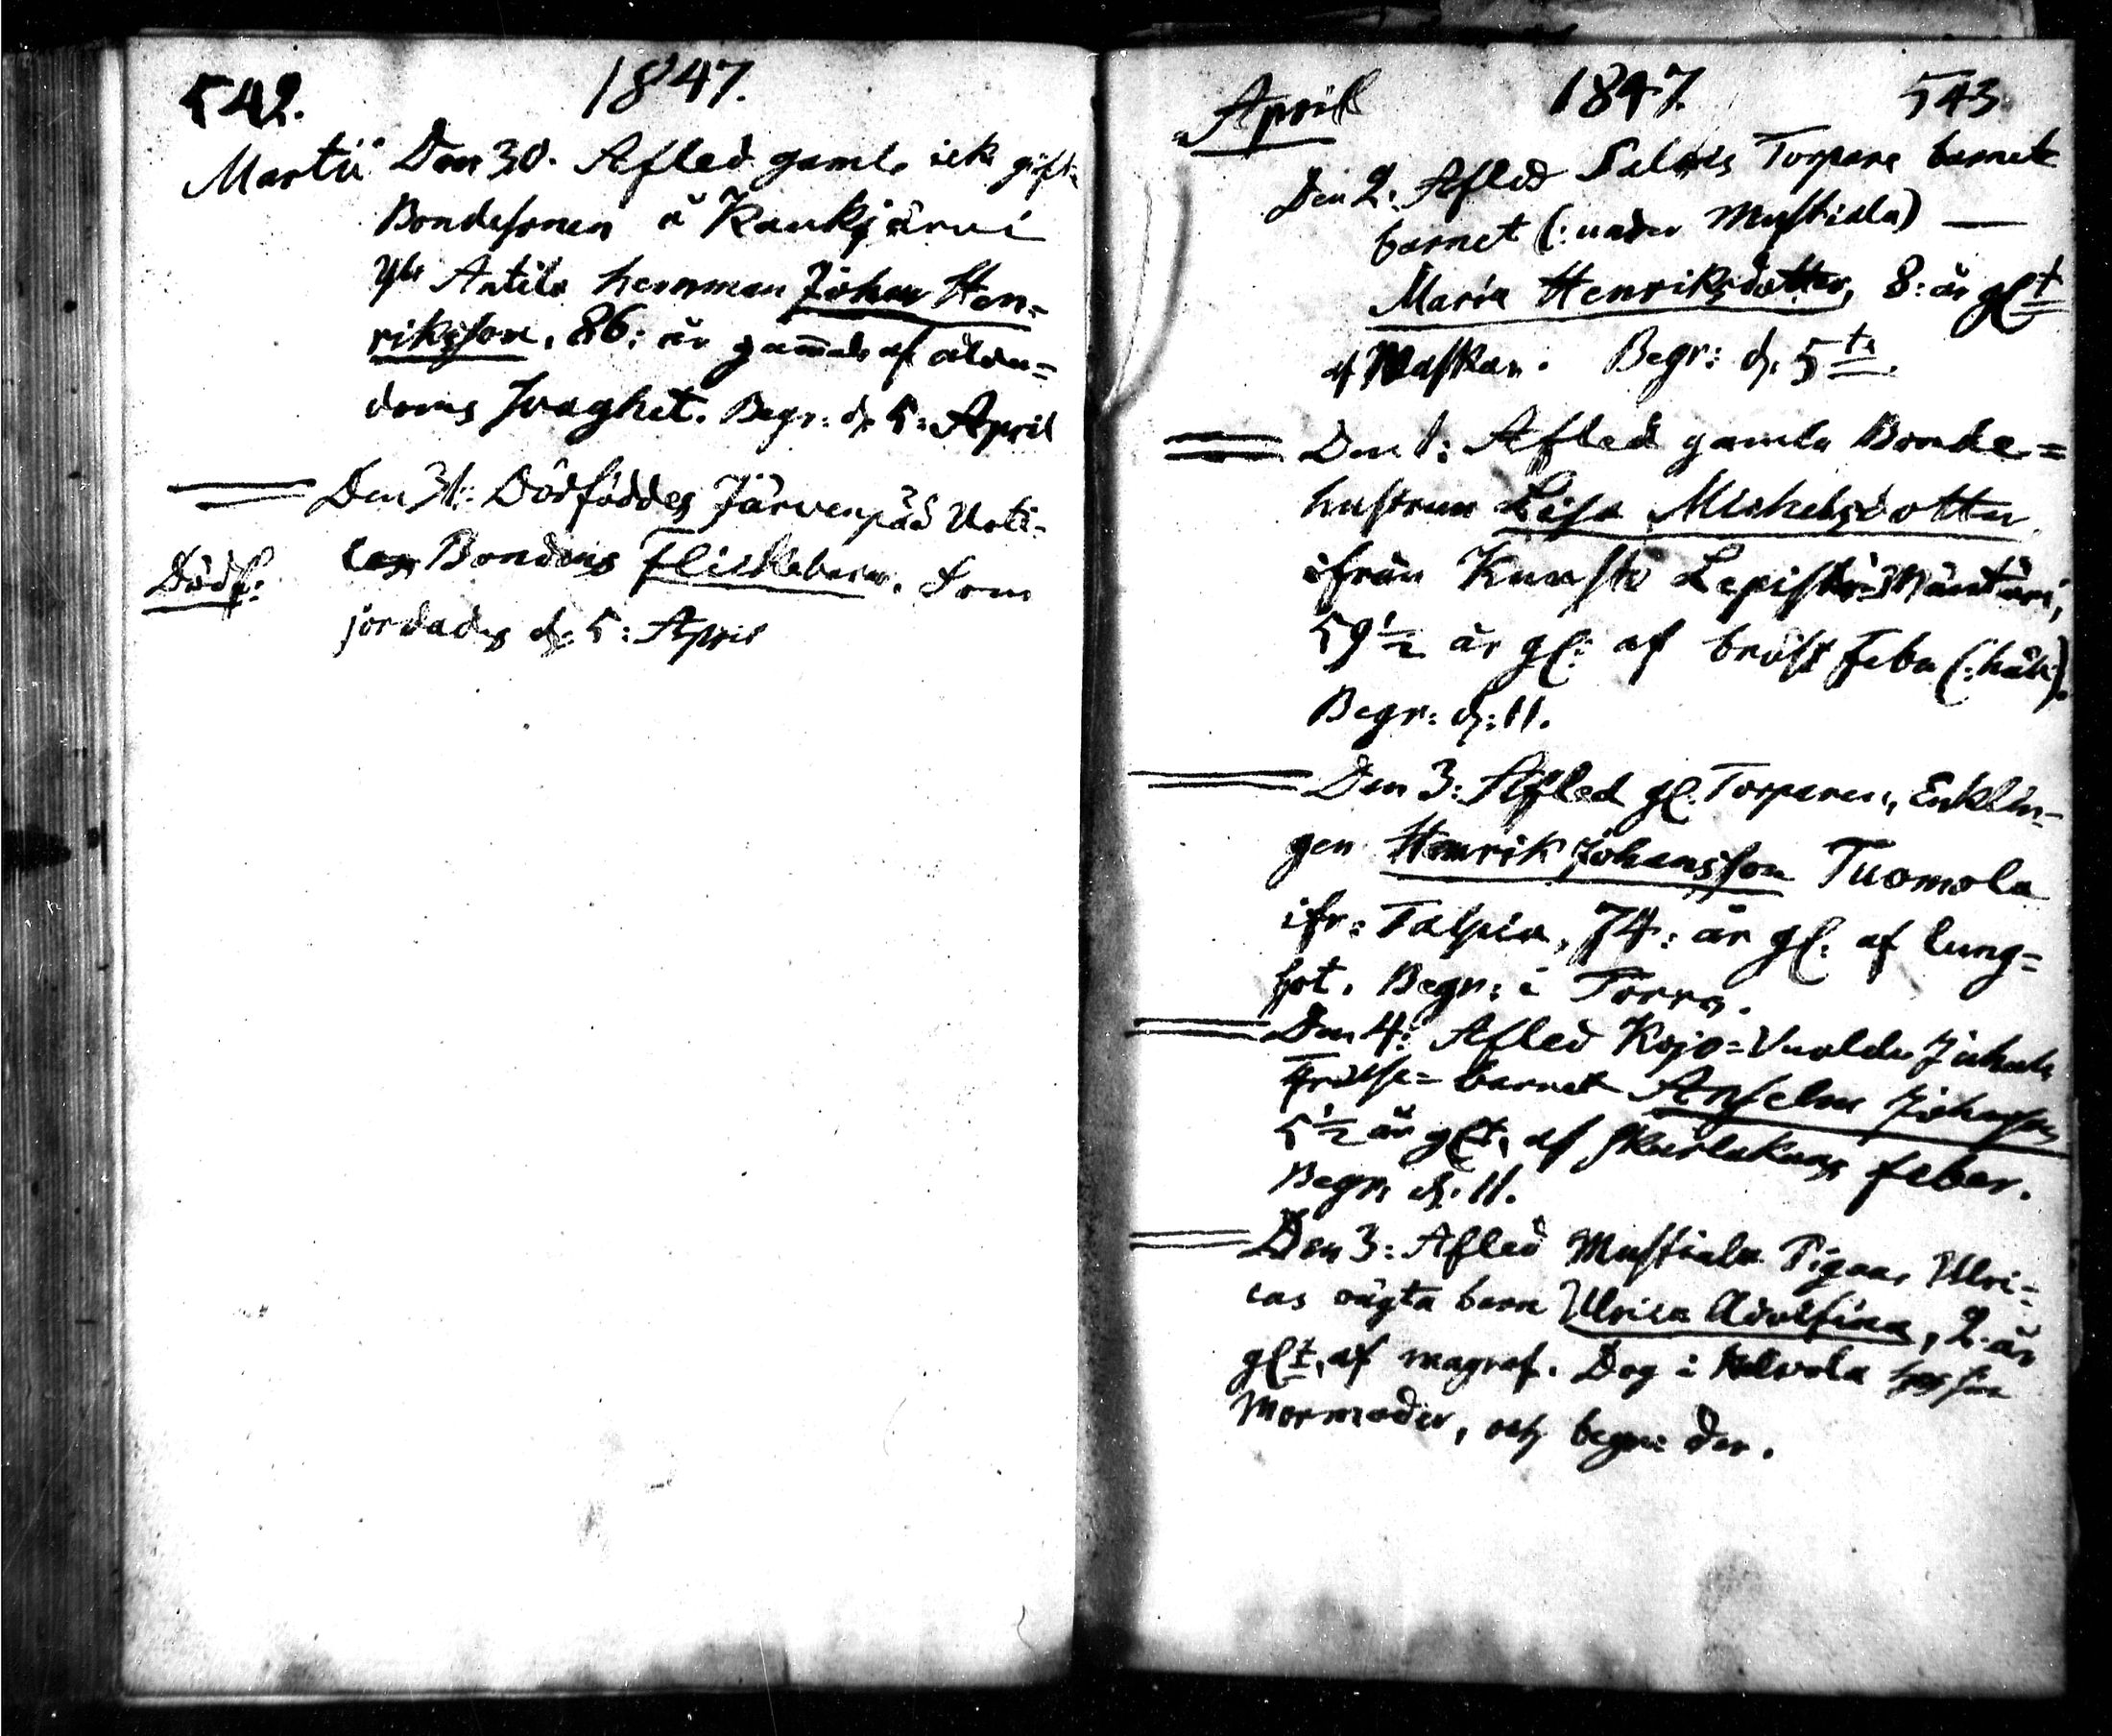 542. 1847.
Martii Den 30. Afled gamle icke gifte
Bondesonen å Kaukjärvi
Yli Antila hemman Johan Hen=
riksson, 86: år gammal af ålder=
doms svaghet. Begr: d. 5: April
Den 31: Dödföddes Järvenpää Unti-
las Bondens flickebarn. Som
Dödf:
jordades d. 5: April
April 1847. 543
Den 2: Afled Salmis Torpare barnet
barnet (: under Mustiala) —
Maria Henriksdotter, 8: år glt
af Maskar. Begr: d. 5te.
Den 1: Afled gamla Bonde=
hustrun Lisa Michelsdotter
ifrån Kuusto Lepistö=Mäntäri,
59 1/2 år gl: af bröst feber (: håll:).
Begr: d: 11.
Den 3: Afled gl. Torparen, Enklin-
gen Henrik Johansson Tuomola
ifr: Talpia, 74: år gl: af lung=
sot. Begr: i Torro.
Den 4: Afled Kojo=Vuolde Juhala
Frälse= barnet Anselm Johansson
5 1/2 år glt. af skarlakans feber.
Begr. d. 11.
Den 3: Afled Mustiala Pigans Ulri=
cas oägta barn Ulrica Adolfina, 2. år
glt. af magref. Dog i Kalvola hos sin
Mormoder, och begr: der.